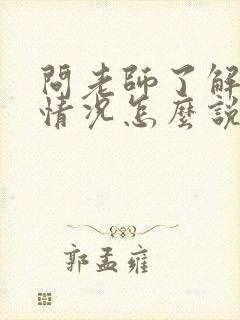 問老師了解
情況怎麼說
郭孟雍